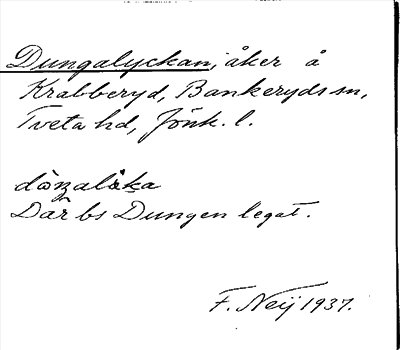 Dungalyckan, åker å
Krabberyd, Bankeryds sn,
Tveta hd, Jönk. l.
Där bs Dungen legat.
F. Neij 1937.